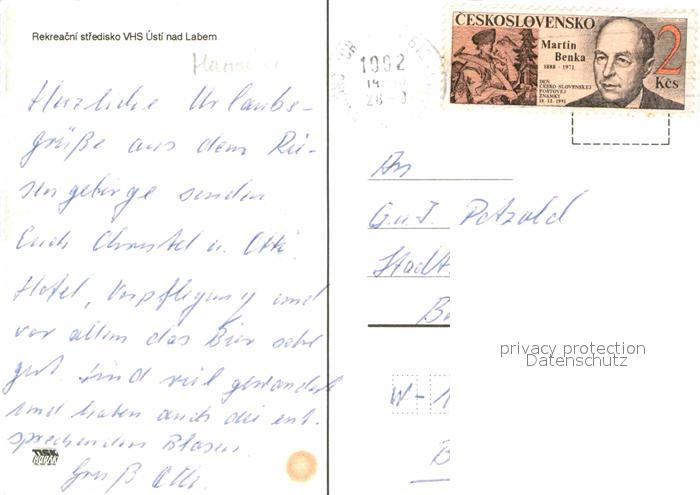 Rekreační středisko VHS Ústí nad Labem
Herzliche Urlaubs-
grüße aus dem Rie-
sengebirge senden
Euch Christel u. Otti.
Hotel, Verpflegung und
vor allem das Bier sehr
gut. Sind viel gewandert
und haben auch die ent-
sprechenden Blasen.
Gruß Otti.
TISK
1992
14
28
ČESKOSLOVENSKO
Martin
Benka
1888 - 1971
DEŇ
ČESKO-SLOVENSKEJ
POŠTOVEJ
ZNÁMKY
18. 12. 1991
2
Kčs
An
G. u. I. Petzold
Stadt
B
W-1
B
privacy protection
Datenschutz